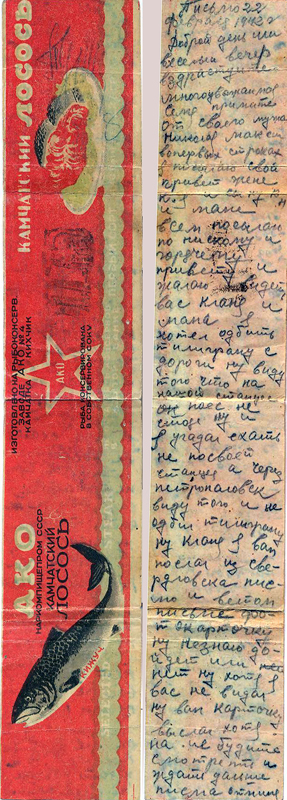 КАМЧАТСКИЙ ЛОСОСЬ
ИЗГОТОВЛЕНО НА РЫБОКОНСЕРВ.
ЗАВОДЕ АКО № 4
КАМЧАТКА КИХЧИК
АКО
РЫБА КОНСЕРВИРОВАНА
В СОБСТВЕННОМ СОКУ
АКО
НАРКОМПИЩЕПРОМ СССР
КАМЧАТСКИЙ
ЛОСОСЬ
КИЖУЧ
Письмо 22
февраля 1942 г
Добрый день или
веселый вечер
здрастуйте
многоуважаемое
семе примите
от своего мужа
Николая
вопервых строках
я посылаю свой
привет жене
и маме
всем посылаю
по низкому и
привету и
желаю
вас Клана и
мама я
хотел одбить
тилиграму с
дороги ну виду
того что на
какой станцие
он поес не
стоде ну и
я угадал ехать
не посвает
станцие а через
петропаловск
виду того и не
одбил тилиграму
ну Клана я вам
послал из Све
рловска пис
мо и встом
письме фот
окарточку
ну незнаю до
йдет или
нет ну хотя я
вас не видал
ну вам карточку
выслал хотя
на не будите
смотреть и
ждать далше
писма